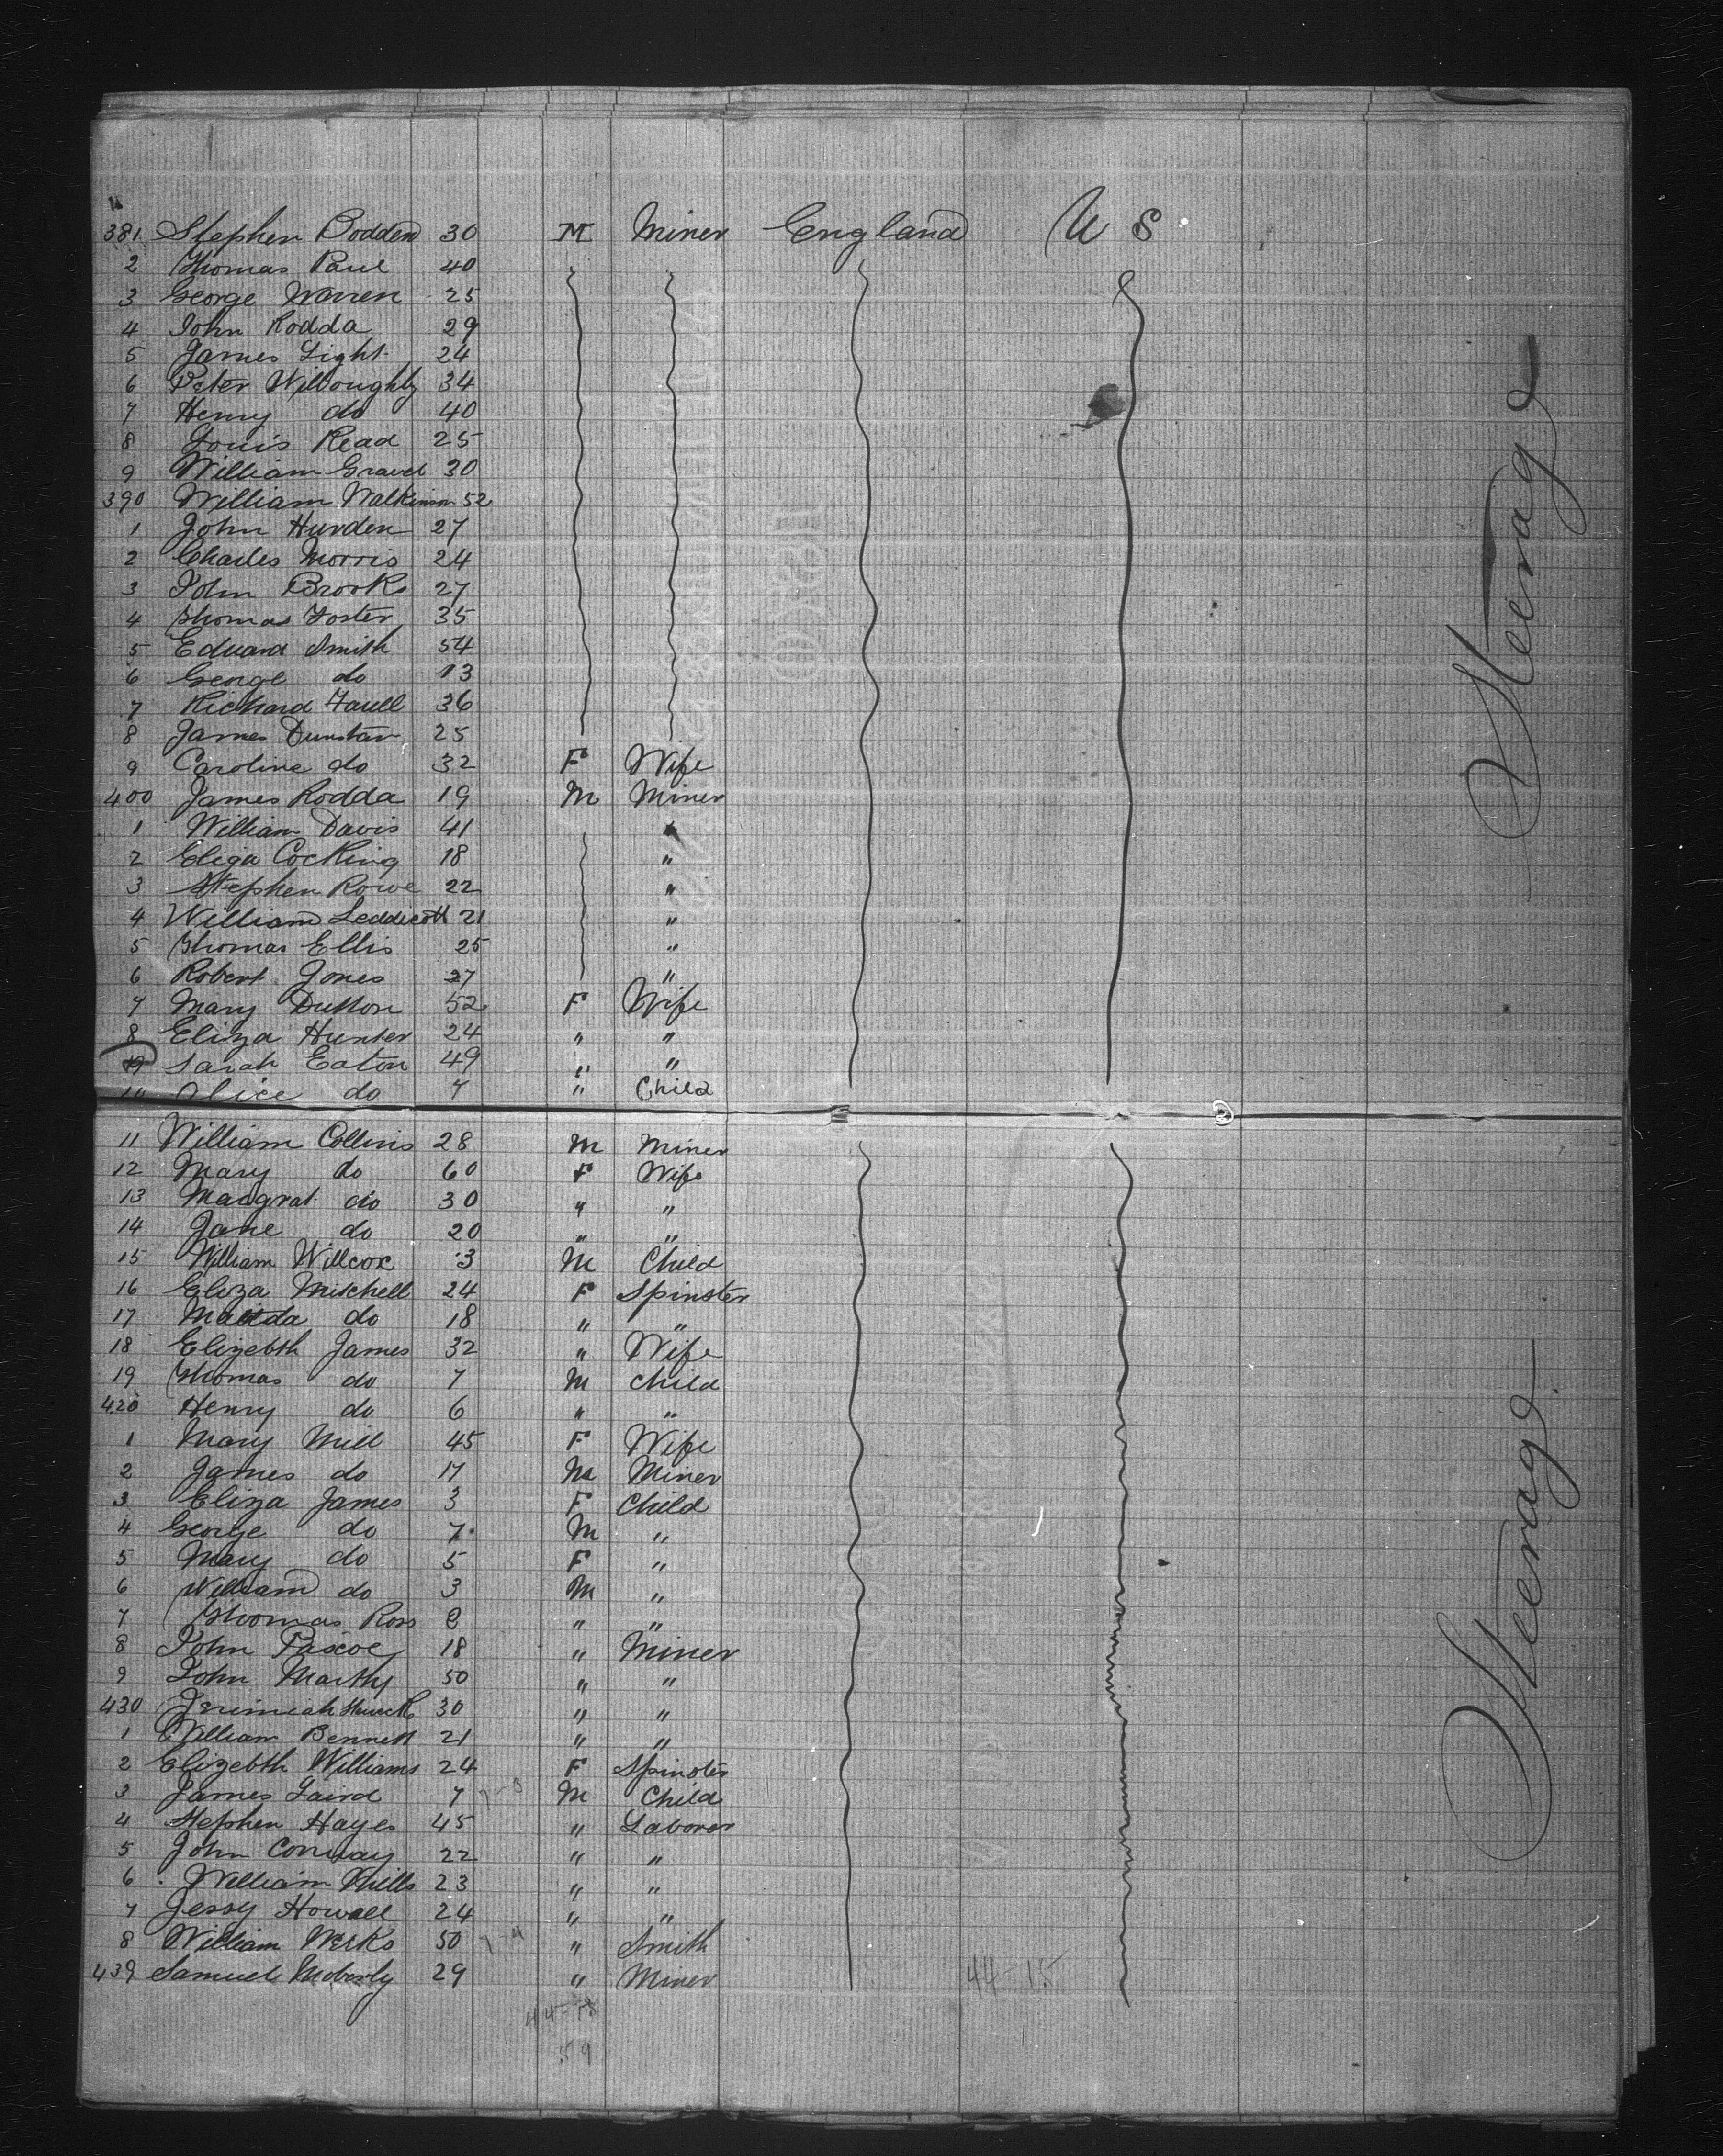 381 Stephen Bodden 30 M Miner England U S
2 Thomas Paul 40
3 George Warren 25
4 John Rodda 29
5 James Light 24
6 Peter Willoughby 34
7 Henry do 40
8 Louis Read 25
9 William Gravel 30
390 William Walkinson 52
1 John Hurden 27
2 Charles Morris 24
3 John Brooks 27
4 Thomas Foster 35
5 Edward Smith 54
6 George do 13
7 Richard 36
8 James Dunstan 25
9 Caroline do 32 F Wife
400 James Rodda 19 M Miner
1 William Davis 41 "
2 Eliga Cocking 18 "
3 Stephen Rowe 22 "
4 William Leddicott 21 "
5 Thomas Ellis 25 "
6 Robert Jones 27 "
7 Mary Dutton 52 F Wife
8 Eliza Hunter 24 " "
9 Sarah Eaton 49 " "
10 Alice do 7 " Child
11 William Collins 28 M Miner
12 Mary do 60 F Wife
13 Margrat do 30 " "
14 Jane do 20 " "
15 William Willcox 3 M Child
16 Eliza Mitchell 24 F Spinster
17 do 18 " "
18 Elizebth James 32 " Wife
19 Thomas do 7 M Child
420 Henry do 6 " "
1 Mary Mill 45 F Wife
2 James do 17 M Miner
3 Eliza James 3 F Child
4 George do 7 M "
5 Mary do 5 F "
6 William do 3 M "
7 Thomas Ross 2 " "
8 John Pascoe 18 " Miner
9 John Marthy 50 " "
430 Jerimiah 30 " "
1 William Bennett 21 " "
2 Elizebth Williams 24 F Spinster
3 James Laird 7 M Child
4 Stephen Hayes 45 " Laborer
5 John Conway 22 " "
6 William Mills 23 " "
7 Jessy Howall 24 " "
8 William Werks 50 " Smith
439 Samuel Moberly 29 " Miner
44-15
44-15
59
Steerag
Steerag